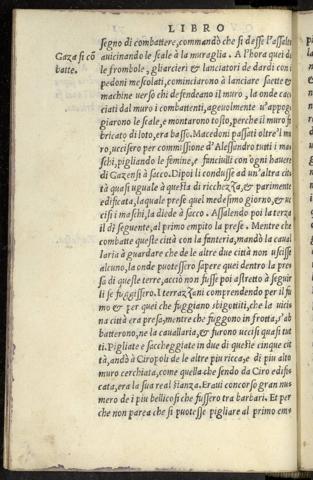 LIBRO
segno di combattere, commandò che si desse l'assalto
Gaza si cō
batte.
avicinando le scale à la muraglia. A l'hora quei de
le frombole, gli arcieri & lanciatori de dardi con i
pedoni mescolati, cominciarono à lanciare saette &
machine verso chi defendeano il muro, la onde cac=
ciati dal muro i combattenti, agevolmente v'appog
giarono le scale, e montarono tosto, perche il muro fa
bricato di loto, era basso. Macedoni passati oltre'l mu
ro, uccisero per commissione d'Alessandro tutti i ma
schi, pigliando le femine, e fanciulli con ogni havere
di Gazensi à sacco. Dipoi li condusse ad un'altra cit
tà quasi uguale à questa di ricchezza, & parimente
edificata, la quale prese quel medesimo giorno, & uc
cisi i maschi, la diede à sacco. Assalendo poi la terza
il dì seguente, al primo empito la prese. Mentre che
combatte queste città con la fanteria, mandò la caval
laria à guardare che de le altre due città non uscisse
alcuno, la onde puotessero sapere quei dentro la pre
sa di queste terre, acciò non fusse poi astretto à segui
li se fuggissero. I terrazzani comprendendo per il fu
mo & per quei che fuggiano sbigottiti, che la vici
na città era presa, mentre che fuggono in frotta, s'ab
batterono, ne la cavallaria, & furono uccisi quasi tut
ti. Pigliate e saccheggiate in due dì queste cinque cit
tà, andò à Ciropoli de le altre piu ricca, e di piu alto
muro cerchiata, come quella che sendo da Ciro edifi
cata, era la sua real stanza. Eravi concorso gran nu
mero de i piu bellicosi che fussero tra barbari. Et per
che non parea che si puotesse pigliare al primo em=